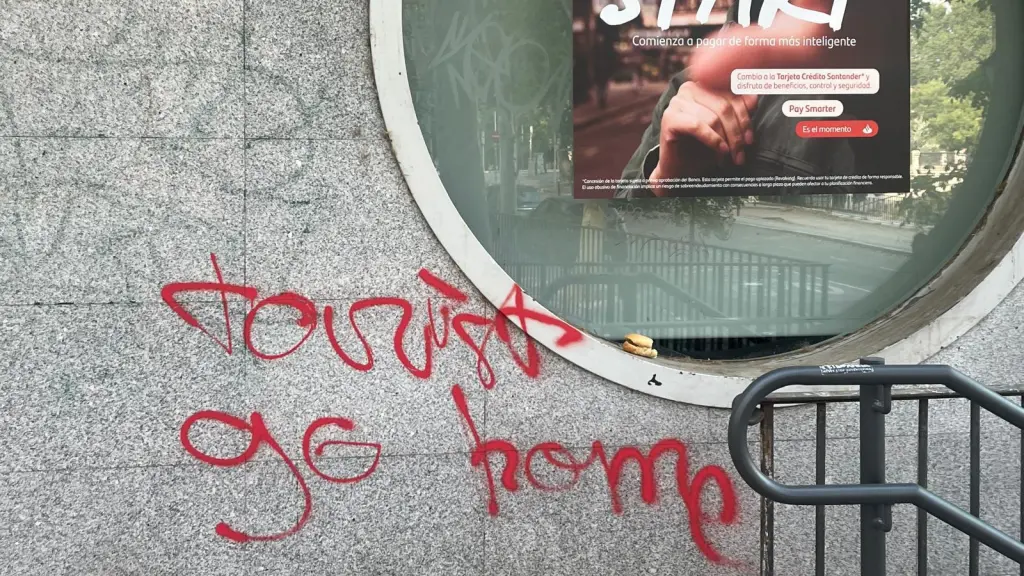 START
Comienza a pagar de forma más inteligente
Cambia a la Tarjeta Crédito Santander* y
disfruta de beneficios, control y seguridad.
Pay Smarter
Es el momento
*Concesión de la tarjeta sujeta a previa aprobación del Banco. Esta tarjeta permite el pago aplazado (Revolving). Recuerda usar tu tarjeta de crédito de forma responsable.
El uso abusivo de financiación implica un riesgo de sobreendeudamiento con consecuencias a largo plazo que pueden afectar a tu planificación financiera.
tourist
go home